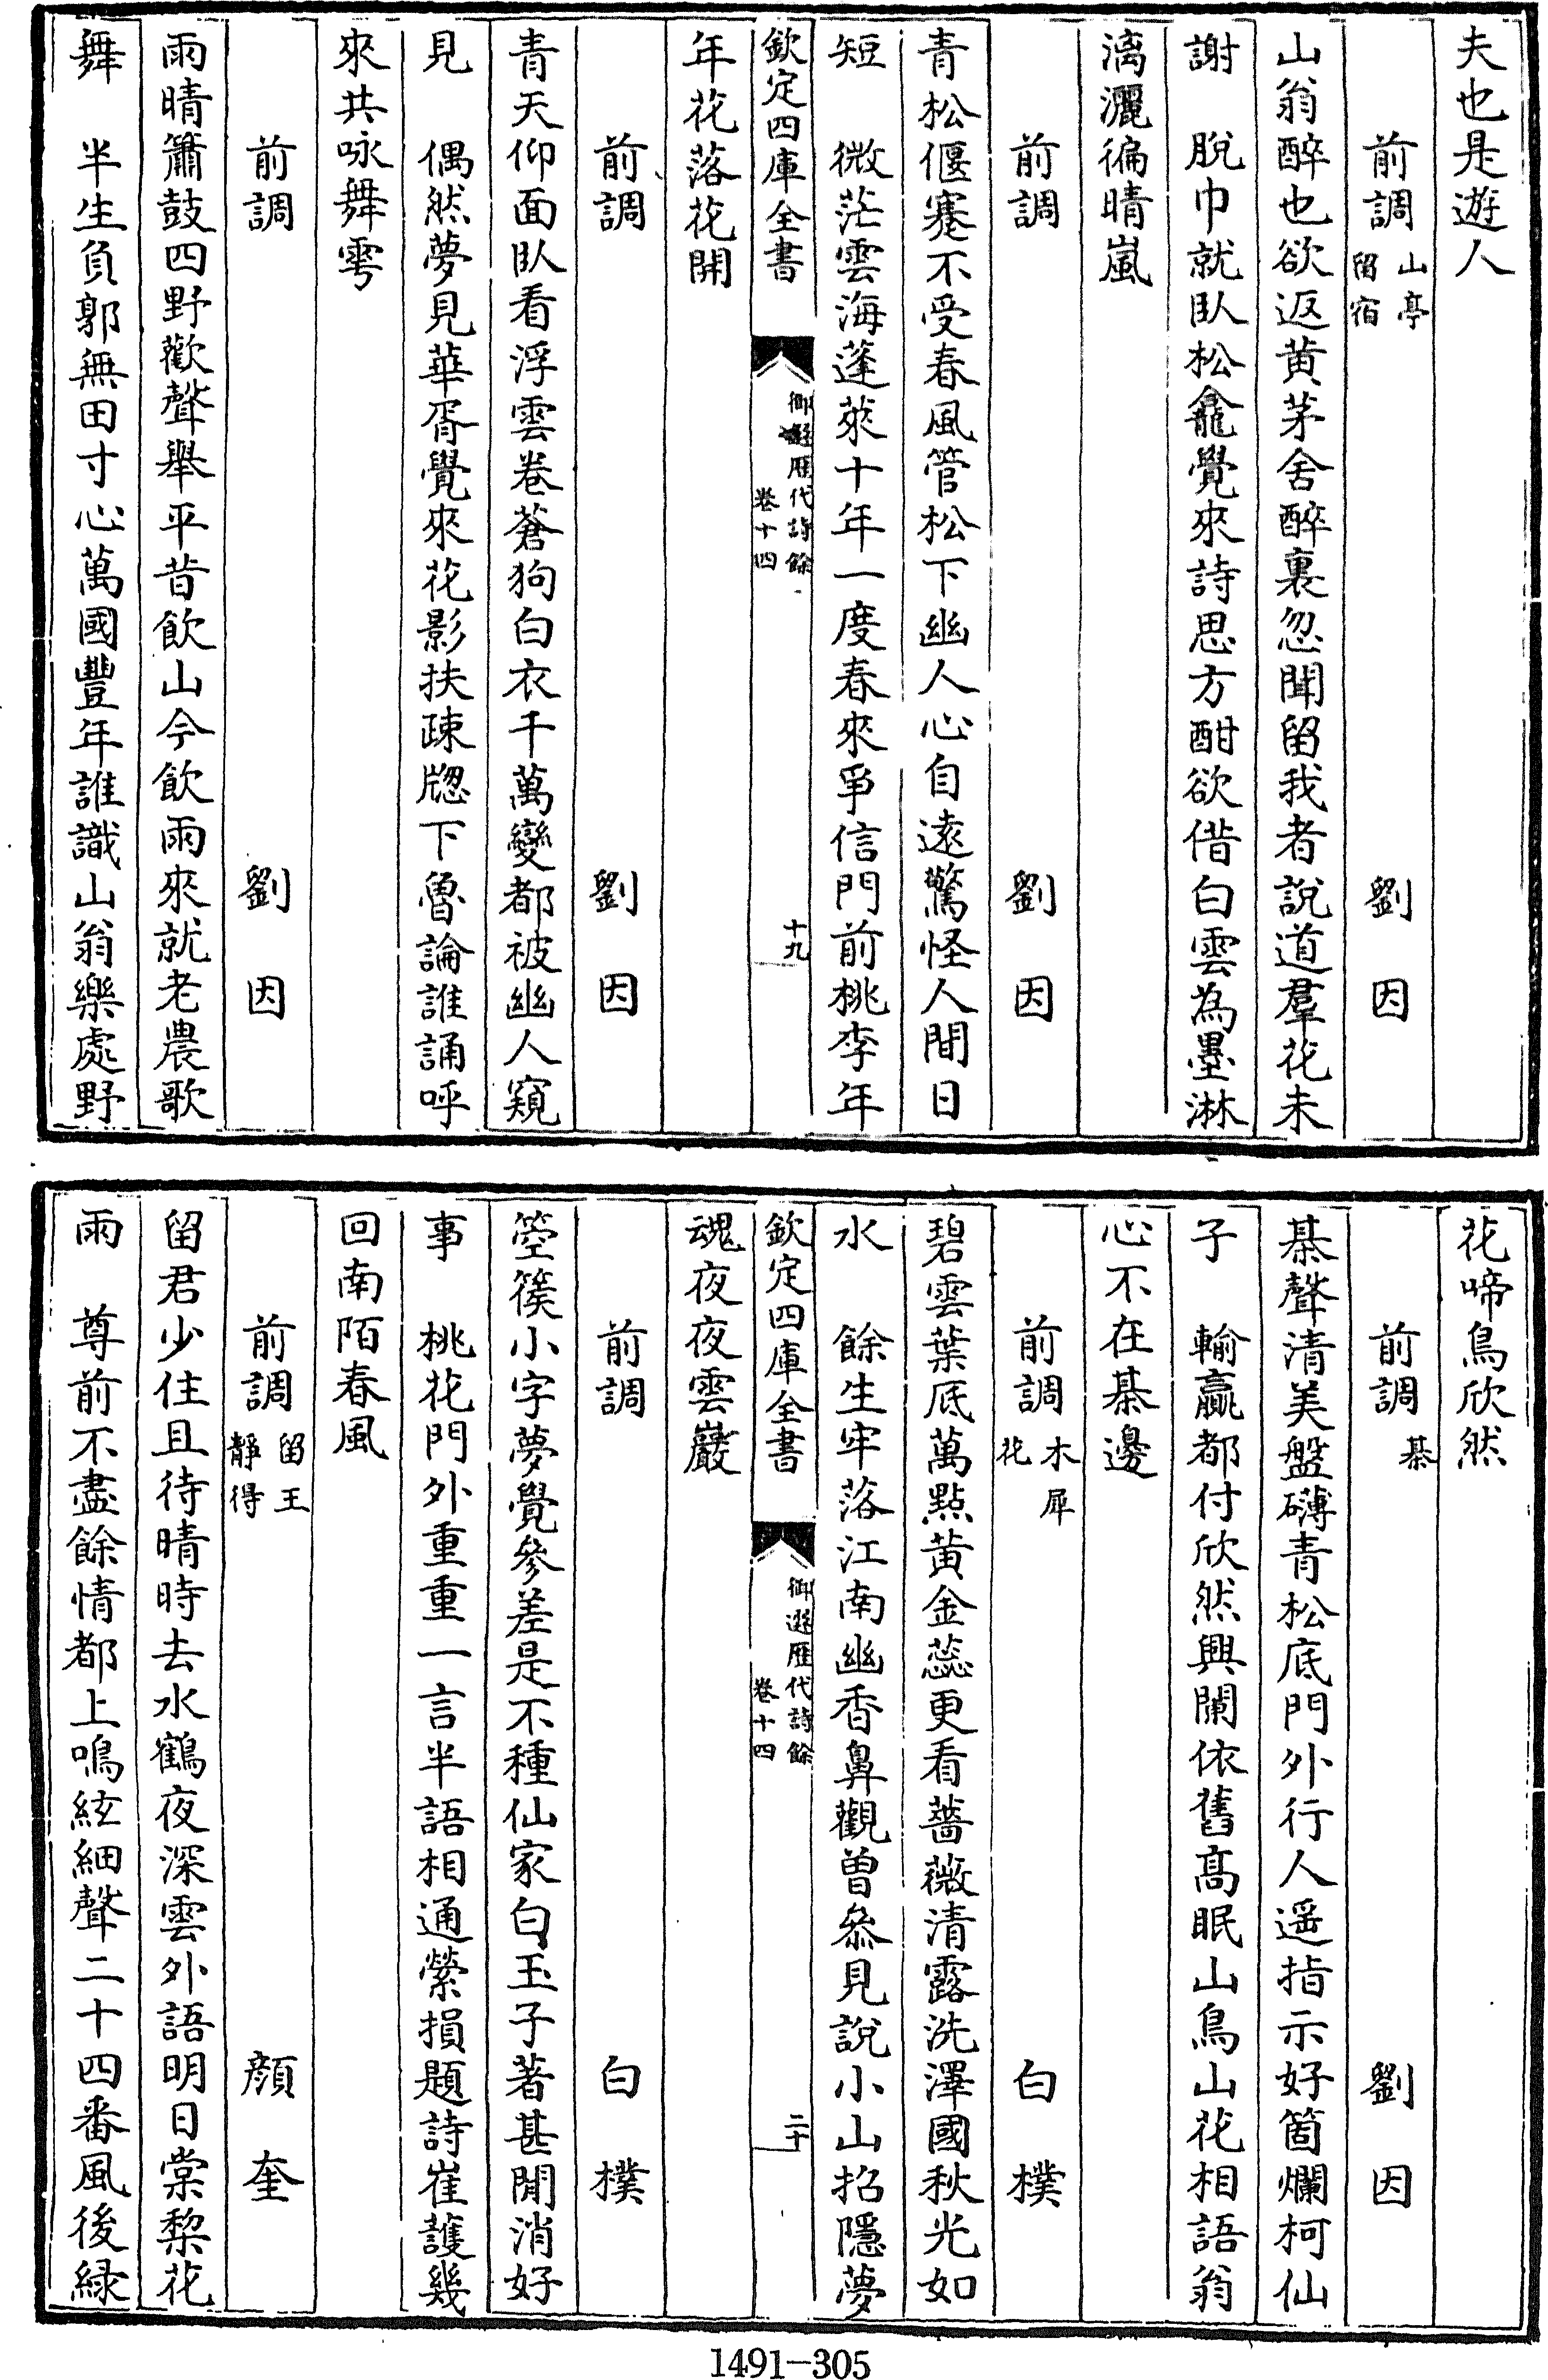 夫也是遊人
前調山亭留宿 劉因
山翁醉也欲返黄茅舍醉裏忽聞留我者說道羣花未
謝 脫巾就臥松龕覺來詩思方酣欲借白雲為墨淋
漓灑徧晴嵐
前調 劉因
青松偃蹇不受春風管松下幽人心自遠驚怪人間日
短 微茫雲海蓬萊十年一度春來爭信門前桃李年
欽定四庫全書 御選歷代詩餘 卷十四 十九
年花落花開
前調 劉因
青天仰面臥看浮雲卷蒼狗白衣千萬變都被幽人窺
見 偶然夢見華胥覺來花影扶疎牕下魯論誰誦呼
來共咏舞雩
前調 劉因
雨晴簫鼓四野歡聲舉平昔飲山今飲雨來就老農歌
舞 半生負郭無田寸心萬國豐年誰識山翁樂處野
花啼鳥欣然
前調棊 劉因
棊聲清美盤礴青松底門外行人遥指示好箇爛柯仙
子 輸贏都付欣然興闌依舊髙眠山鳥山花相語翁
心不在棊邊
前調木犀花 白樸
碧雲葉底萬點黄金蕊更看薔薇清露洗澤國秋光如
水 餘生牢落江南幽香鼻觀曽叅見說小山招隱夢
欽定四庫全書 御選歷代詩餘 卷十四 二十
魂夜夜雲巖
前調 白樸
箜篌小字夢覺參差是不種仙家白玉子著甚閒消好
事 桃花門外重重一言半語相通縈損題詩崔護幾
回南陌春風
前調留王靜得 顔奎
留君少住且待晴時去水鶴夜深雲外語明日棠梨花
雨 尊前不盡餘情都上鳴絃細聲二十四番風後緑
1491-305